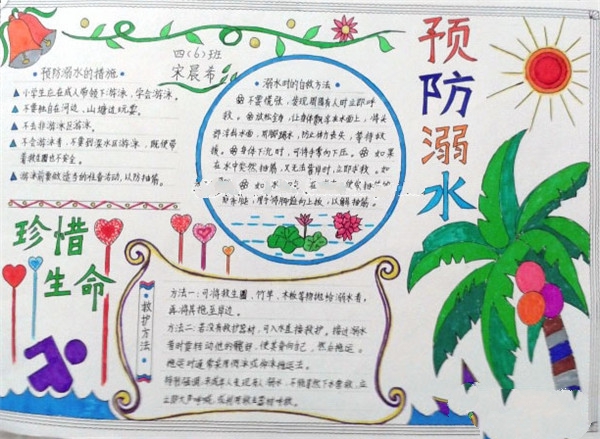 预防溺水
四(6)班
宋晨希
预防溺水的措施
小学生应在成人带领下游泳,学会游泳。
不要独自在河边、山塘边玩耍。
不去非游泳区游泳。
不会游泳者,不要到深水区游泳,既使带
着救生圈也不安全。
游泳前要做适当的准备活动,以防抽筋。
溺水时的自救方法:
不要慌张,发现周围有人时立即呼
救。放松全身,让身体飘浮在水面上,将头
部浮出水面,用脚踢水,防止体力丧失,等待救
援。身体下沉时,可将手掌向下压。如果
在水中突然抽筋,又无法靠岸时,立即求救。如
珍惜
生命
救护方法:
方法一:可将救生圈、竹竿、木板等物抛给溺水者,
再将其拖至岸边。
方法二:若没有救护器材,可入水直接救护。接近溺水
者时要转动他的髋部,使其背向自己,然后拖运。
拖运时通常采用侧泳或仰泳拖运法。
特别强调:未成年人发现有人溺水,不能冒然下水营救,应
立即大声呼喊,